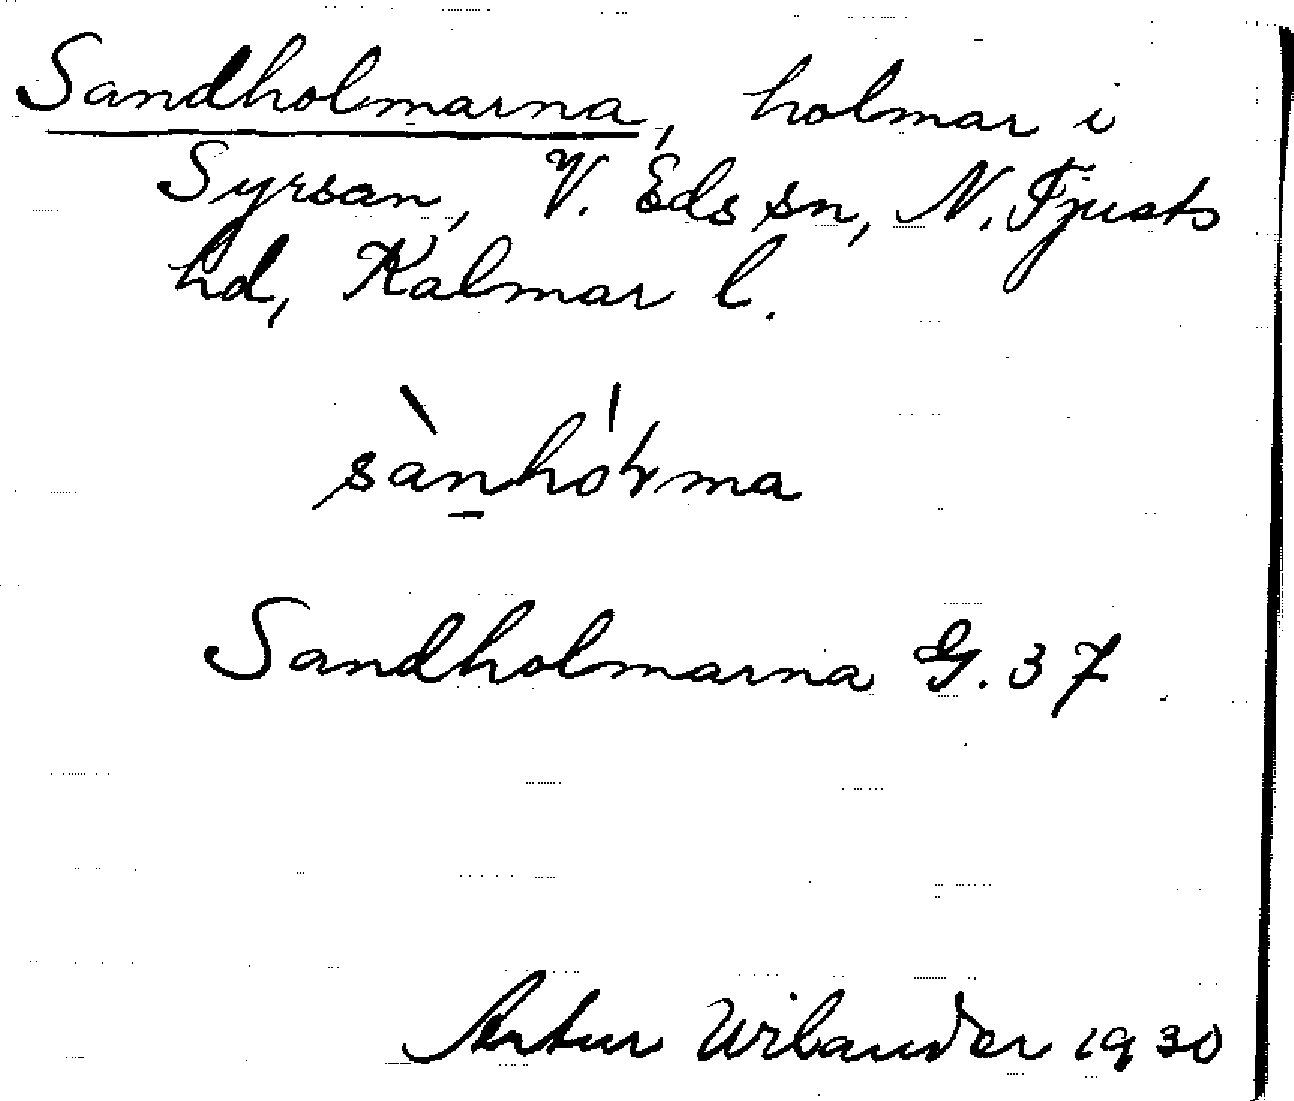 Sandholmarna, holmar i
Syrsan, V. Eds sn, N. Tjusts
hd, Kalmar l.
Sandholmarna G. 37
Artur Wilander 1930